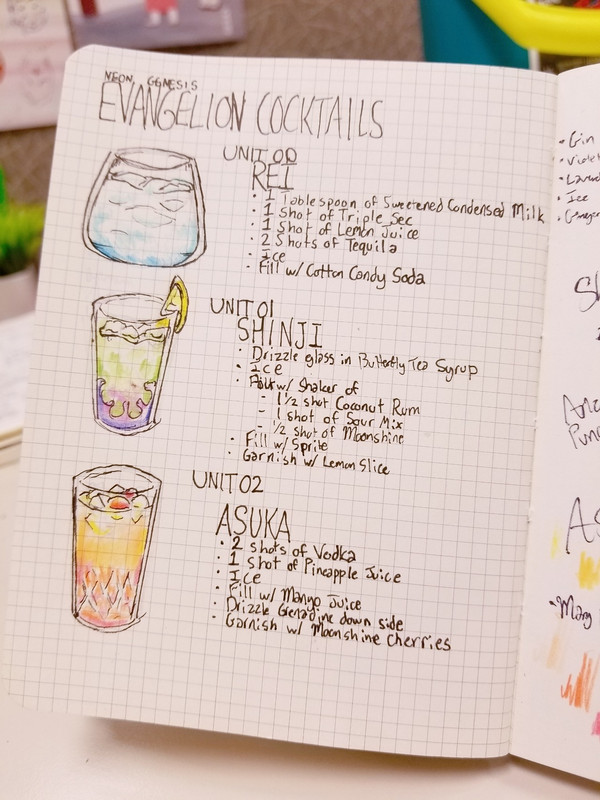 NEON GENESIS
EVANGELION COCKTAILS
UNIT 00
REI
· 1 Tablespoon of Sweetened Condensed Milk
· 1 Shot of Triple Sec
· 1 Shot of Lemon Juice
· 2 Shots of Tequila
· Ice
· Fill w/ Cotton Candy Soda
UNIT 01
SHINJI
· Drizzle glass in Butterfly Tea Syrup
· Ice
· w/ Shaker of
- 1 1/2 shot Coconut Rum
- 1 shot of Sour Mix
- 1/2 shot of Moonshine
· Fill w/ Sprite
· Garnish w/ Lemon Slice
UNIT 02
ASUKA
· 2 shots of Vodka
· 1 shot of Pineapple Juice
· Ice
· Fill w/ Mango Juice
· Drizzle Grenadine down side
· Garnish w/ Moonshine Cherries
· Gin
· Violet
· Ice
· Mang